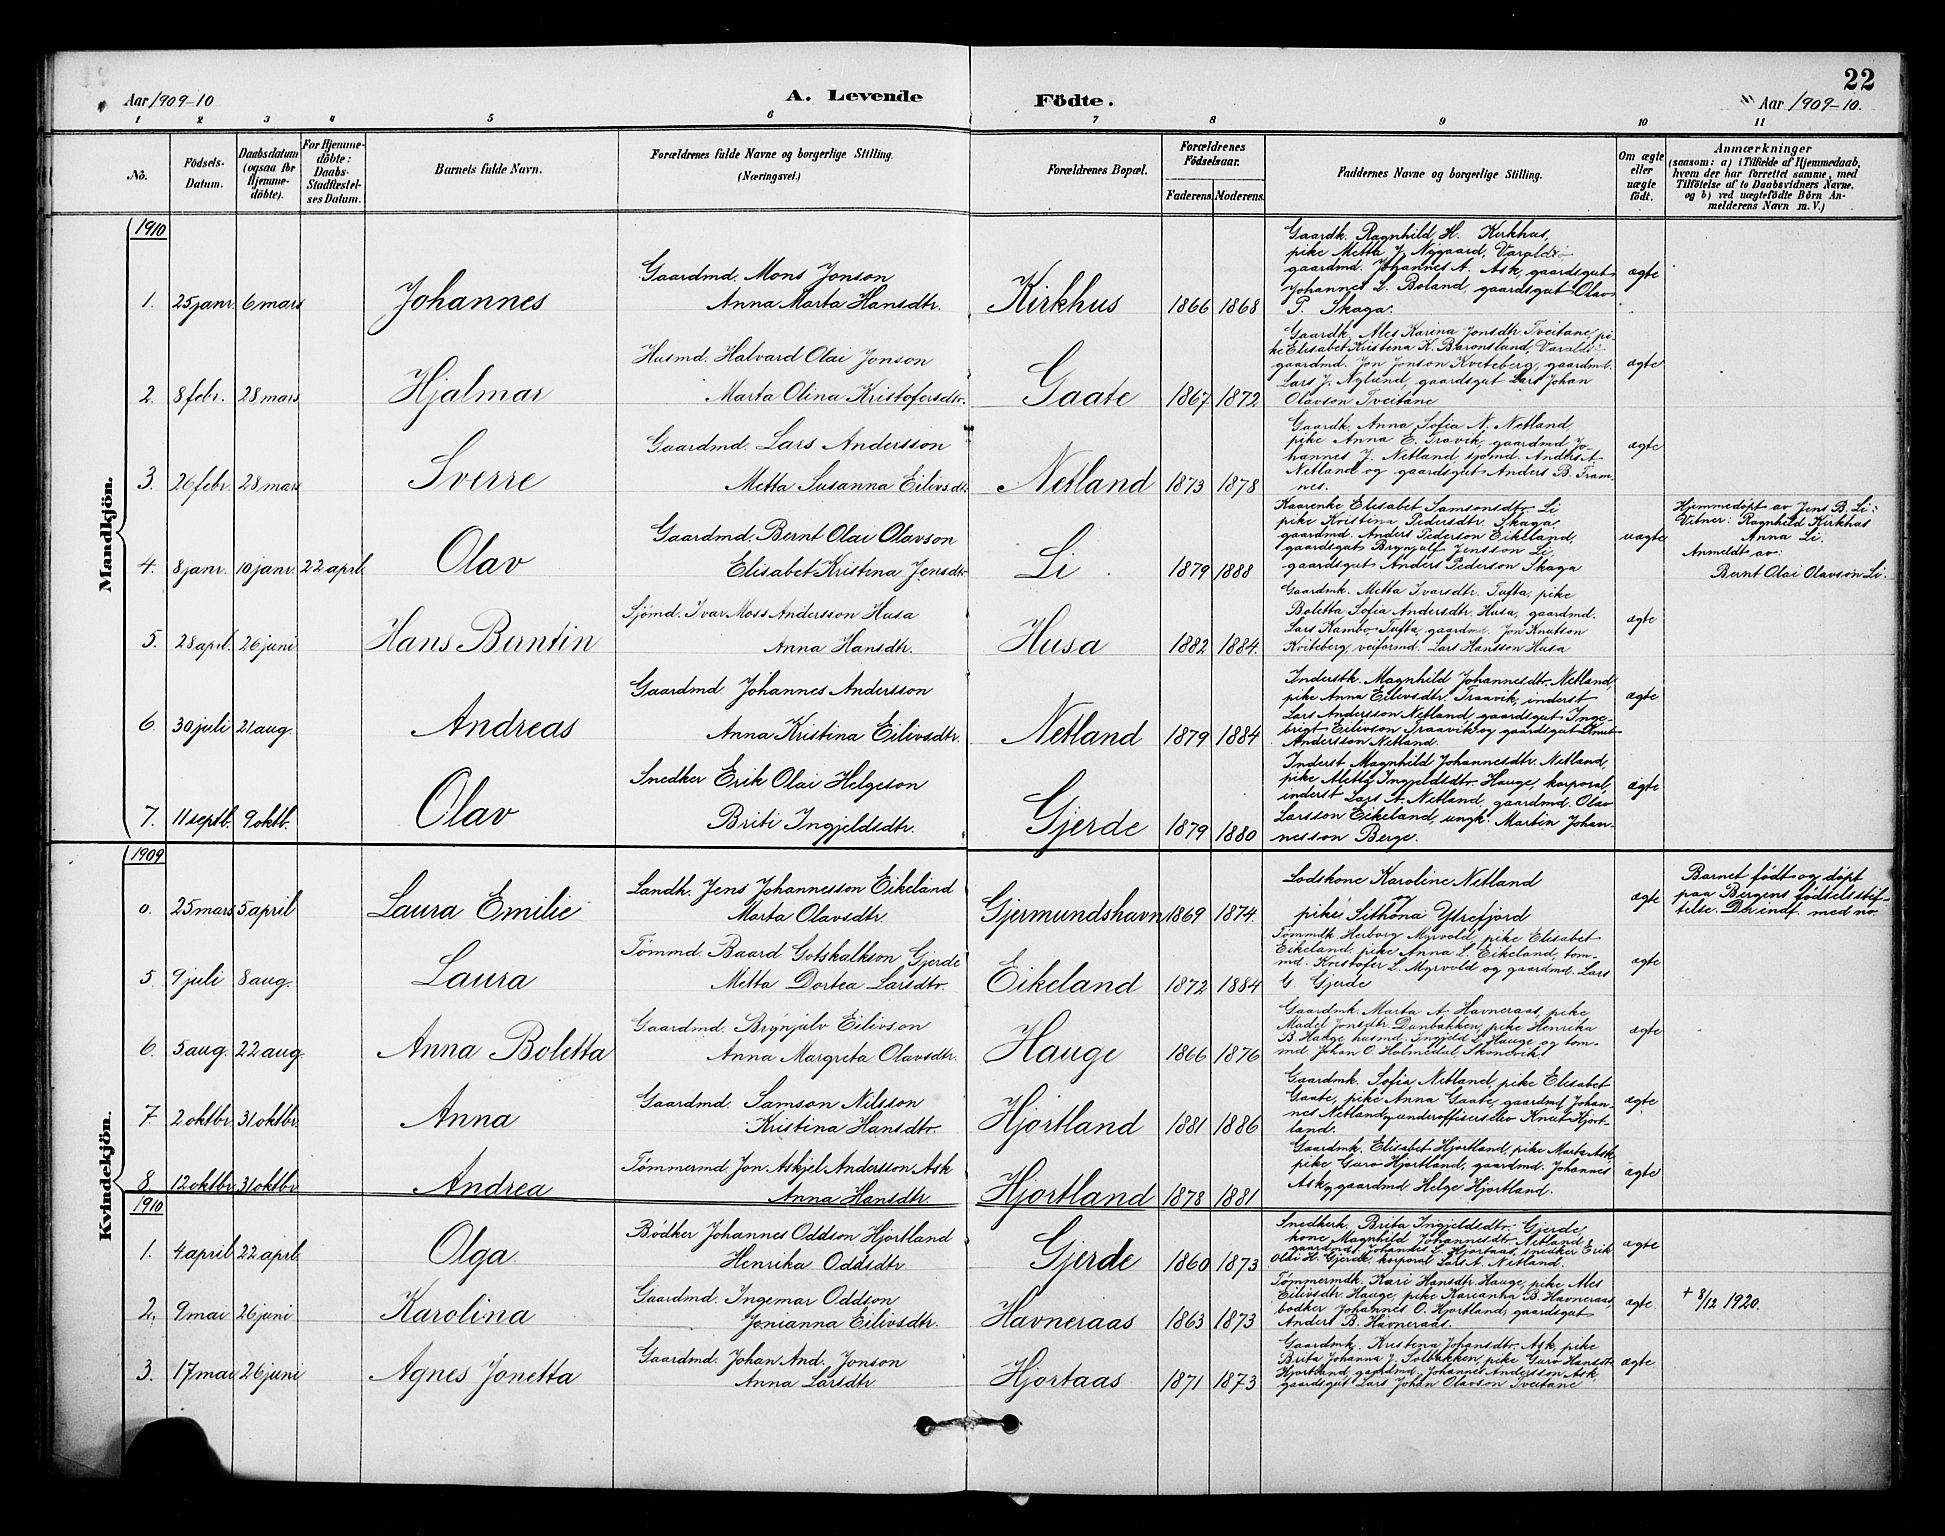 22
Aar 1909-10
A. Levende Födte.
Aar 1909-10.
1 2 3 4 5 6 7 8 9 10 11
No.
Födsels-
Datum.
Daabsdatum
(ogsaa for
Hjemme-
döbte).
For Hjemme-
döbte:
Daabs-
Stadfæstel-
ses Datum.
Barnets fulde Navn.
Forældrenes fulde Navne og borgerlige Stilling.
(Næringsvei.)
Forældrenes Bopæl.
Forældrenes
Födselsaar.
Faderens. Moderens.
Faddernes Navne og borgerlige Stilling.
Om ægte
eller
uægte
födt.
Anmærkninger
(saasom: a) i Tilfælde af Hjemmedaab,
hvem der har forrettet samme, med
Tilföielse af to Daabsvidners Navne.
og b) ved uægtefödte Börn An-
melderens Navn m. V.)
Mandkjön.
1910
1. 25 janr. 6 mars Johannes
Gaardmd. Mons Jonson
Anna Marta Hansdtr.
Kirkhus 1866 1868
Gaardk. Ragnhild H. Kirkhus,
pike Metta J. Nygaard, Varaldsø
gaardmd. Johannes A. Ask, gaardsgut
Johannes L. Boland, gaardsgut Olav
P. Skaga.
ægte
2. 8 febr. 28 mars Hjalmar
Husmd. Halvard Olai Jonson
Marta Olina Kristofersdtr.
Gaate 1867 1872
Gaardk. Ales Karina Jonsdtr. Tveitane, pi-
ke Elisabet Kristina K. Baronslund, Varaldsø
gaardmd. Jon Jonson Kviteberg, gaardmd.
Lars J. Nylund, gaardsgut Lars Johan
Olavson Tveitane
ægte
3. 26 febr. 28 mars Sverre
Gaardmd. Lars Andersson
Metta Susanna Eilivsdtr.
Netland 1873 1878
Gaardk. Anna Sofia N. Netland,
pike Anna E. Travik, gaardmd Jo-
hannes J. Netland sjømd. Anders A
Netland og gaardsgut Anders B. Fram-
nes.
ægte
4. 8 janr. 10 janr. 22 april. Olav
Gaardmd. Bernt Olai Olavson
Elisabet Kristina Jensdtr
Li. 1879 1888
Kaarenke Elisabet Samsonsdtr Li
pike Kristina Pedersdtr. Skaga,
gaardmd. Anders Pederson Eikelland,
gaardsgut Brynjulf Jensson Li,
gaardsgut Anders Pederson Skaga
uægte
Hjemmedøpt av Jens B. Li:
Vitner: Ragnhild Kirkhus
Anna Li.
Anmeldt av:
Bernt Olai Olavson Li.
5. 28 april. 26 juni Hans Berntin
Sjømd. Ivar Moss Andersson Husa
Anna Hansdtr.
Husa 1882 1884.
Gaardmk. Metta Ivarsdtr. Tufta, pike
Boletta Sofia Andersdtr. Husa, gaardmd.
Lars Kambo Tufta, gaardmd. Jon Knutson
Kviteberg, veiformd. Lars Hansson Husa
ægte
6. 30 juli 21 aug. Andreas
Gaardmd. Johannes Andersson
Anna Kristina Eilivsdtr.
Netland 1879 1884
Inderstk. Magnhild Johannesdtr. Netland,
pike Anna Eilivsdtr. Traavik, inderst
Lars Andersson Netland, gaardsgut Inge-
brigt Eilivson Traavik og gaardsgut Knut
Andersson Netland.
ægte
7. 11 septb. 9 oktb. Olav
Snedker Erik Olai Helgeson
Brite Ingjeldsdtr.
Gjerde 1879 1880
Inderst Magnhild Johannesdtr. Netland,
pike Metta Ingjeldsdtr. Hauge, korporal,
inderst Lars A. Netland, gaardmd. Olav
Larsson Eikeland, ungk. Martin Johan-
nesson Berge.
ægte
Kvindekjön.
1909
0. 25 mars 5 april Laura Emilie
Landh. Jens Johannesson Eikeland
Marta Olavsdtr.
Gjermundshavn 1869 1874.
Lodskone Karoline Netland
og
pike Sithona Ytrefjord
ægte
Barnet født og døpt
paa Bergens fødselsstif-
telse. Der indf. med no.
5. 9 juli 8 aug. Laura
Tømmd. Baard Gotskalkson Gjerde
Metta Dortea Larsdtr.
Eikeland 1872 1884
Tømmdk Herborg Myrvold, pike Elisabet
Eikeland, pike Anna L. Eikeland, tøm-
md. Kristofer L. Myrvold og gaardmd. Lars
G. Gjerde
ægte
6. 5 aug. 22 aug. Anna Boletta
Gaardmd. Brynjulv Eilivson
Anna Margreta Olavsdtr.
Hauge 1866 1876
Gaardmk. Marta A Havneraas, pike
Madel Jonsdtr. Danbakken, pike Henrika
B. Hauge husmd. Ingjeld L. Hauge og tøm-
md Johan O. Holmedal Skonevik.
ægte
7. 2 oktbr. 31 oktbr. Anna
Gaardmd. Samson Nilsson
Kristina Hansdtr.
Hjortland 1881 1886
Gaardmk. Sofia Netland, pike Elisabet
Gaate, pike Anna Gaate, gaardmd Johan-
nes Netland og underoffiserselev Knut Hjort-
land.
ægte
8. 12 oktbr. 31 oktbr Andrea
Tømmermd. Jon Askjel Andersson Ask
Anna Hansdtr.
Hjortland 1878 1881
Gaardmk. Elisabet Hjortland, pike Marta Ask,
pike Guro Hjortland, gaardmd. Johannes
Ask og gaardmd. Helge Hjortland.
ægte
1910
1. 4 april 22 april Olga
Bødker Johannes Oddson Hjortland
Henrika Oddsdtr.
Gjerde 1860 1873
Snedkerk. Brita Ingjeldsdtr. Gjerde,
kone Magnhild Johannesdtr. Netland,
gaardmd. Johannes L. Hjortaas, snedker Erik
Olai H. Gjerde, korporal Lars A. Netland.
ægte
2. 9 mai 26 juni Karolina
Gaardmd. Ingemar Oddson
Jonianna Eilivsdtr.
Havneraas 1863 1873
Tømmermdk. Kari Hansdtr. Hauge, pike Ales
Eilivsdtr. Hauge, pike Karianna B. Havneraas,
bødker Johannes O. Hjortland, gaardsgut
Anders B. Havneraas.
ægte.
+ 8/12 1920.
3. 17 mai 26 juni Agnes Jonetta
Gaardmd. Johan And. Jonson
Anna Larsdtr.
Hjortaas 1871 1873
Gaardmk. Kristina Johansdtr. Ask, pike
Brita Johanna J. Solbakken, pike Guro Hansdtr
Hjortland, gaardmd. Johannes Andersson Ask,
gaardsgut Lars Johan Olavson Tveitane
ægte.